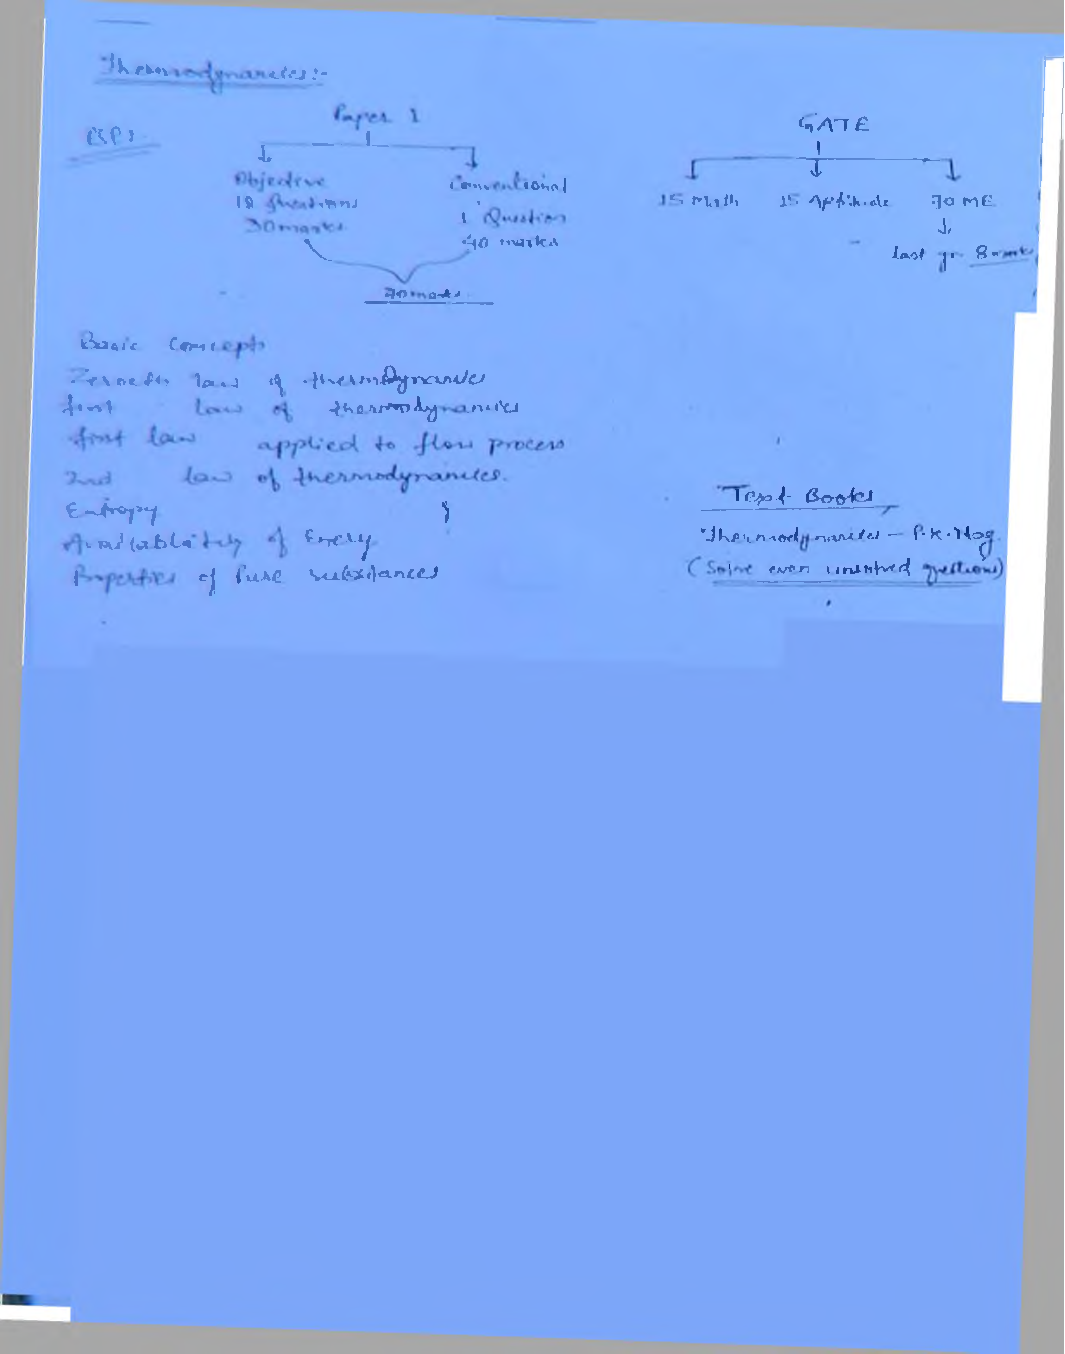 Thermodynamics:-
Paper 1
Objective
18 Questions
30 marks
Conventional
1 Question
40 marks
70 marks
GATE
15 Math
15 Aptitude
70 ME
last yr 8 mark
Basic Concepts
Zeroeth law of thermodynamics
first law of thermodynamics
first law applied to flow process
2nd law of thermodynamics.
Entropy
Availablability of Energy
Properties of Pure substances
Text Books
Thermodynamics — P.K. Nag.
(Solve even unsolved questions)